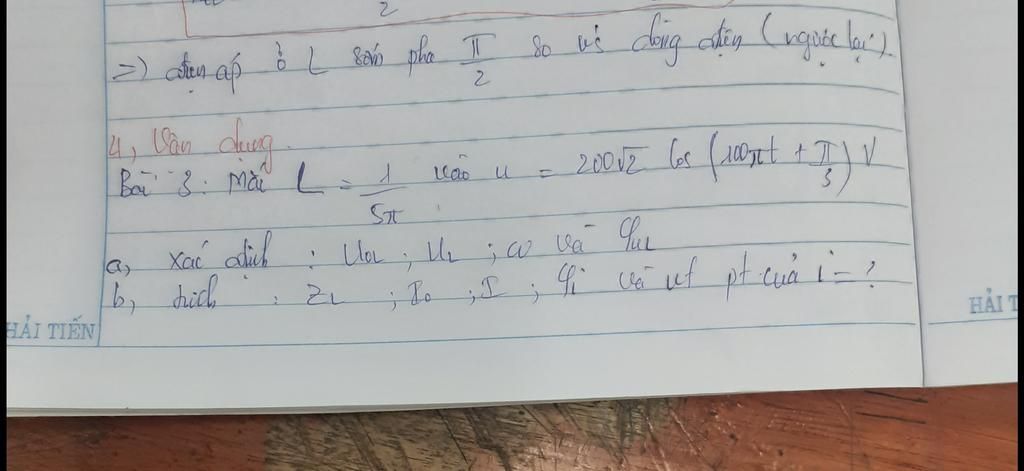 2
=) điện áp ở L sớm pha π/2 so với dòng điện (ngược lại).
4, Vận dụng.
Bài 3: Mắc L = 1/5π vào u = 200√2 cos (100πt + π/3) V
a, xác định : U0L ; UL ; ω và φuL
b, tính : ZL ; I0 ; I ; φi và vt pt của i = ?
HẢI TIẾN
HẢI T